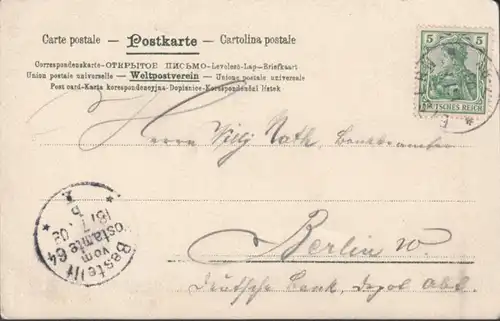 Carte postale – Postkarte – Cartolina postale
Correspondenskarte – ОТКРЫТОЕ ПИСЬМО – Levelező-Lap – Briefkaart
Union postale universelle – Weltpostverein – Unione postale universale
Post card – Karta korespondencyjna – Dopisnice – Korespondenční lístek
5 5
DEUTSCHES REICH
Herrn Willy Rath, Bankbeamter
Berlin W.
Deutsche Bank, Depot Abt.
Bestellt
vom
Postamte 64
18/7.